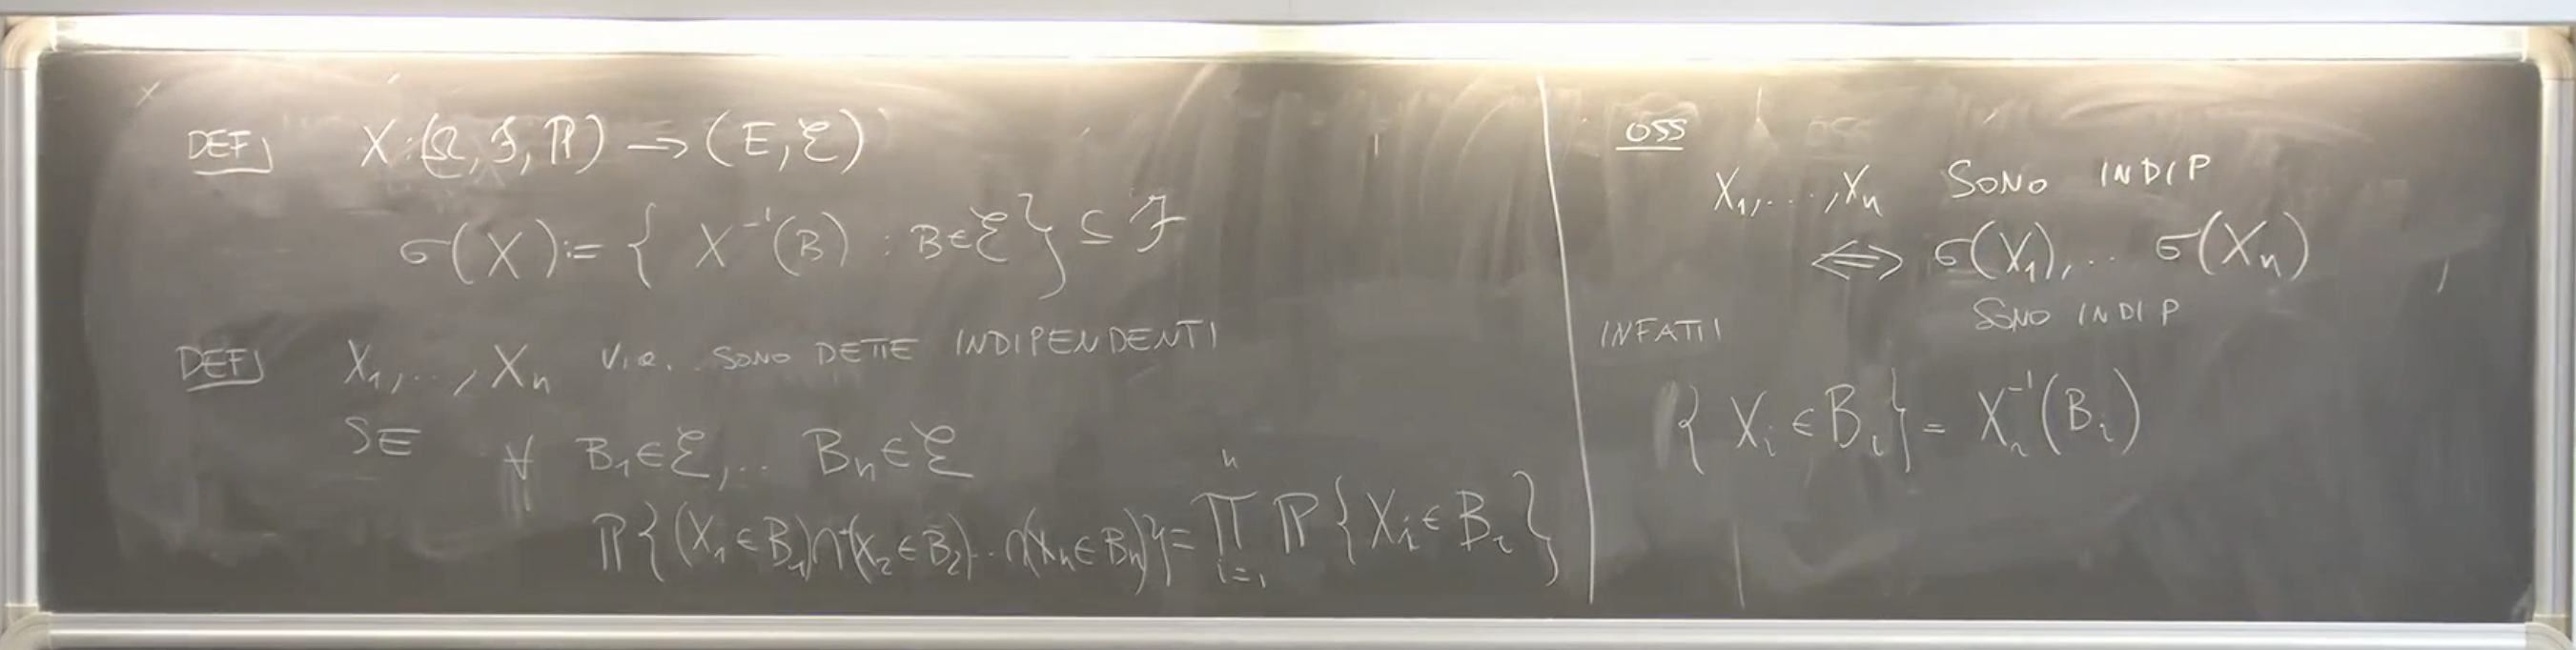 DEF) X:(Ω, ℱ, ℙ) → (E, ℰ)
σ(X) := { X⁻¹(B) : B∈ℰ } ⊆ ℱ
DEF) X₁,..., Xₙ V.A. SONO DETTE INDIPENDENTI
SE ∀ B₁∈ℰ,... Bₙ∈ℰ
ℙ{(X₁∈B₁)∩(X₂∈B₂)...∩(Xₙ∈Bₙ)} = ∏ᵢ₌₁ⁿ ℙ{Xᵢ∈Bᵢ}
OSS
X₁,...,Xₙ SONO INDIP
⟺ σ(X₁),... σ(Xₙ)
SONO INDIP
INFATTI
{ Xᵢ∈Bᵢ } = Xᵢ⁻¹(Bᵢ)